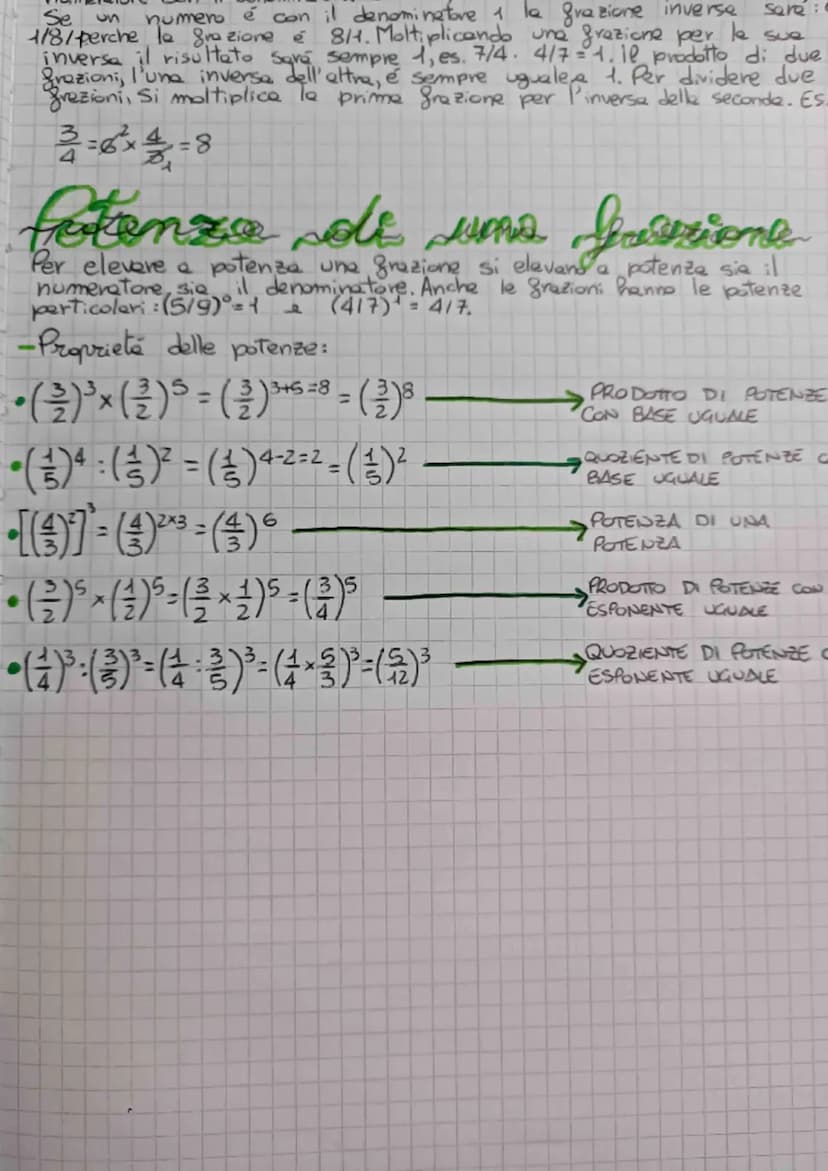 Se un numero é con il denominatore 1 la frazione inversa sará:
1/8/perche la frazione é 8/1. Moltiplicando una frazione per la sua
inversa il risultato sará sempre 1, es. 7/4 · 4/7 = 1. Il prodotto di due
frazioni, l'una inversa dell'altra, é sempre uguale a 1. Per dividere due
frazioni, si moltiplica la prima frazione per l'inversa della seconda. ES.
3/4 = 6² × 4/3₁ = 8
Potenza di una frazione
Per elevare a potenza una frazione si elevano a potenza sia il
numeratore, sia il denominatore. Anche le frazioni hanno le potenze
particolari: (5/9)⁰ = 1 e (4/7)¹ = 4/7.
- Proprietá delle potenze:
• (3/2)³ × (3/2)⁵ = (3/2)³⁺⁵⁼⁸ = (3/2)⁸ → PRODOTTO DI POTENZE
CON BASE UGUALE
• (1/5)⁴ : (1/5)² = (1/5)⁴⁻²⁼² = (1/5)² → QUOZIENTE DI POTENZE C
BASE UGUALE
• [(4/3)²]³ = (4/3)²ˣ³ = (4/3)⁶ → POTENZA DI UNA
POTENZA
• (3/2)⁵ × (1/2)⁵ = (3/2 × 1/2)⁵ = (3/4)⁵ → PRODOTTO DI POTENZE CON
ESPONENTE UGUALE
• (1/4)³ : (3/5)³ = (1/4 : 3/5)³ = (1/4 × 5/3)³ = (5/12)³ → QUOZIENTE DI POTENZE C
ESPONENTE UGUALE